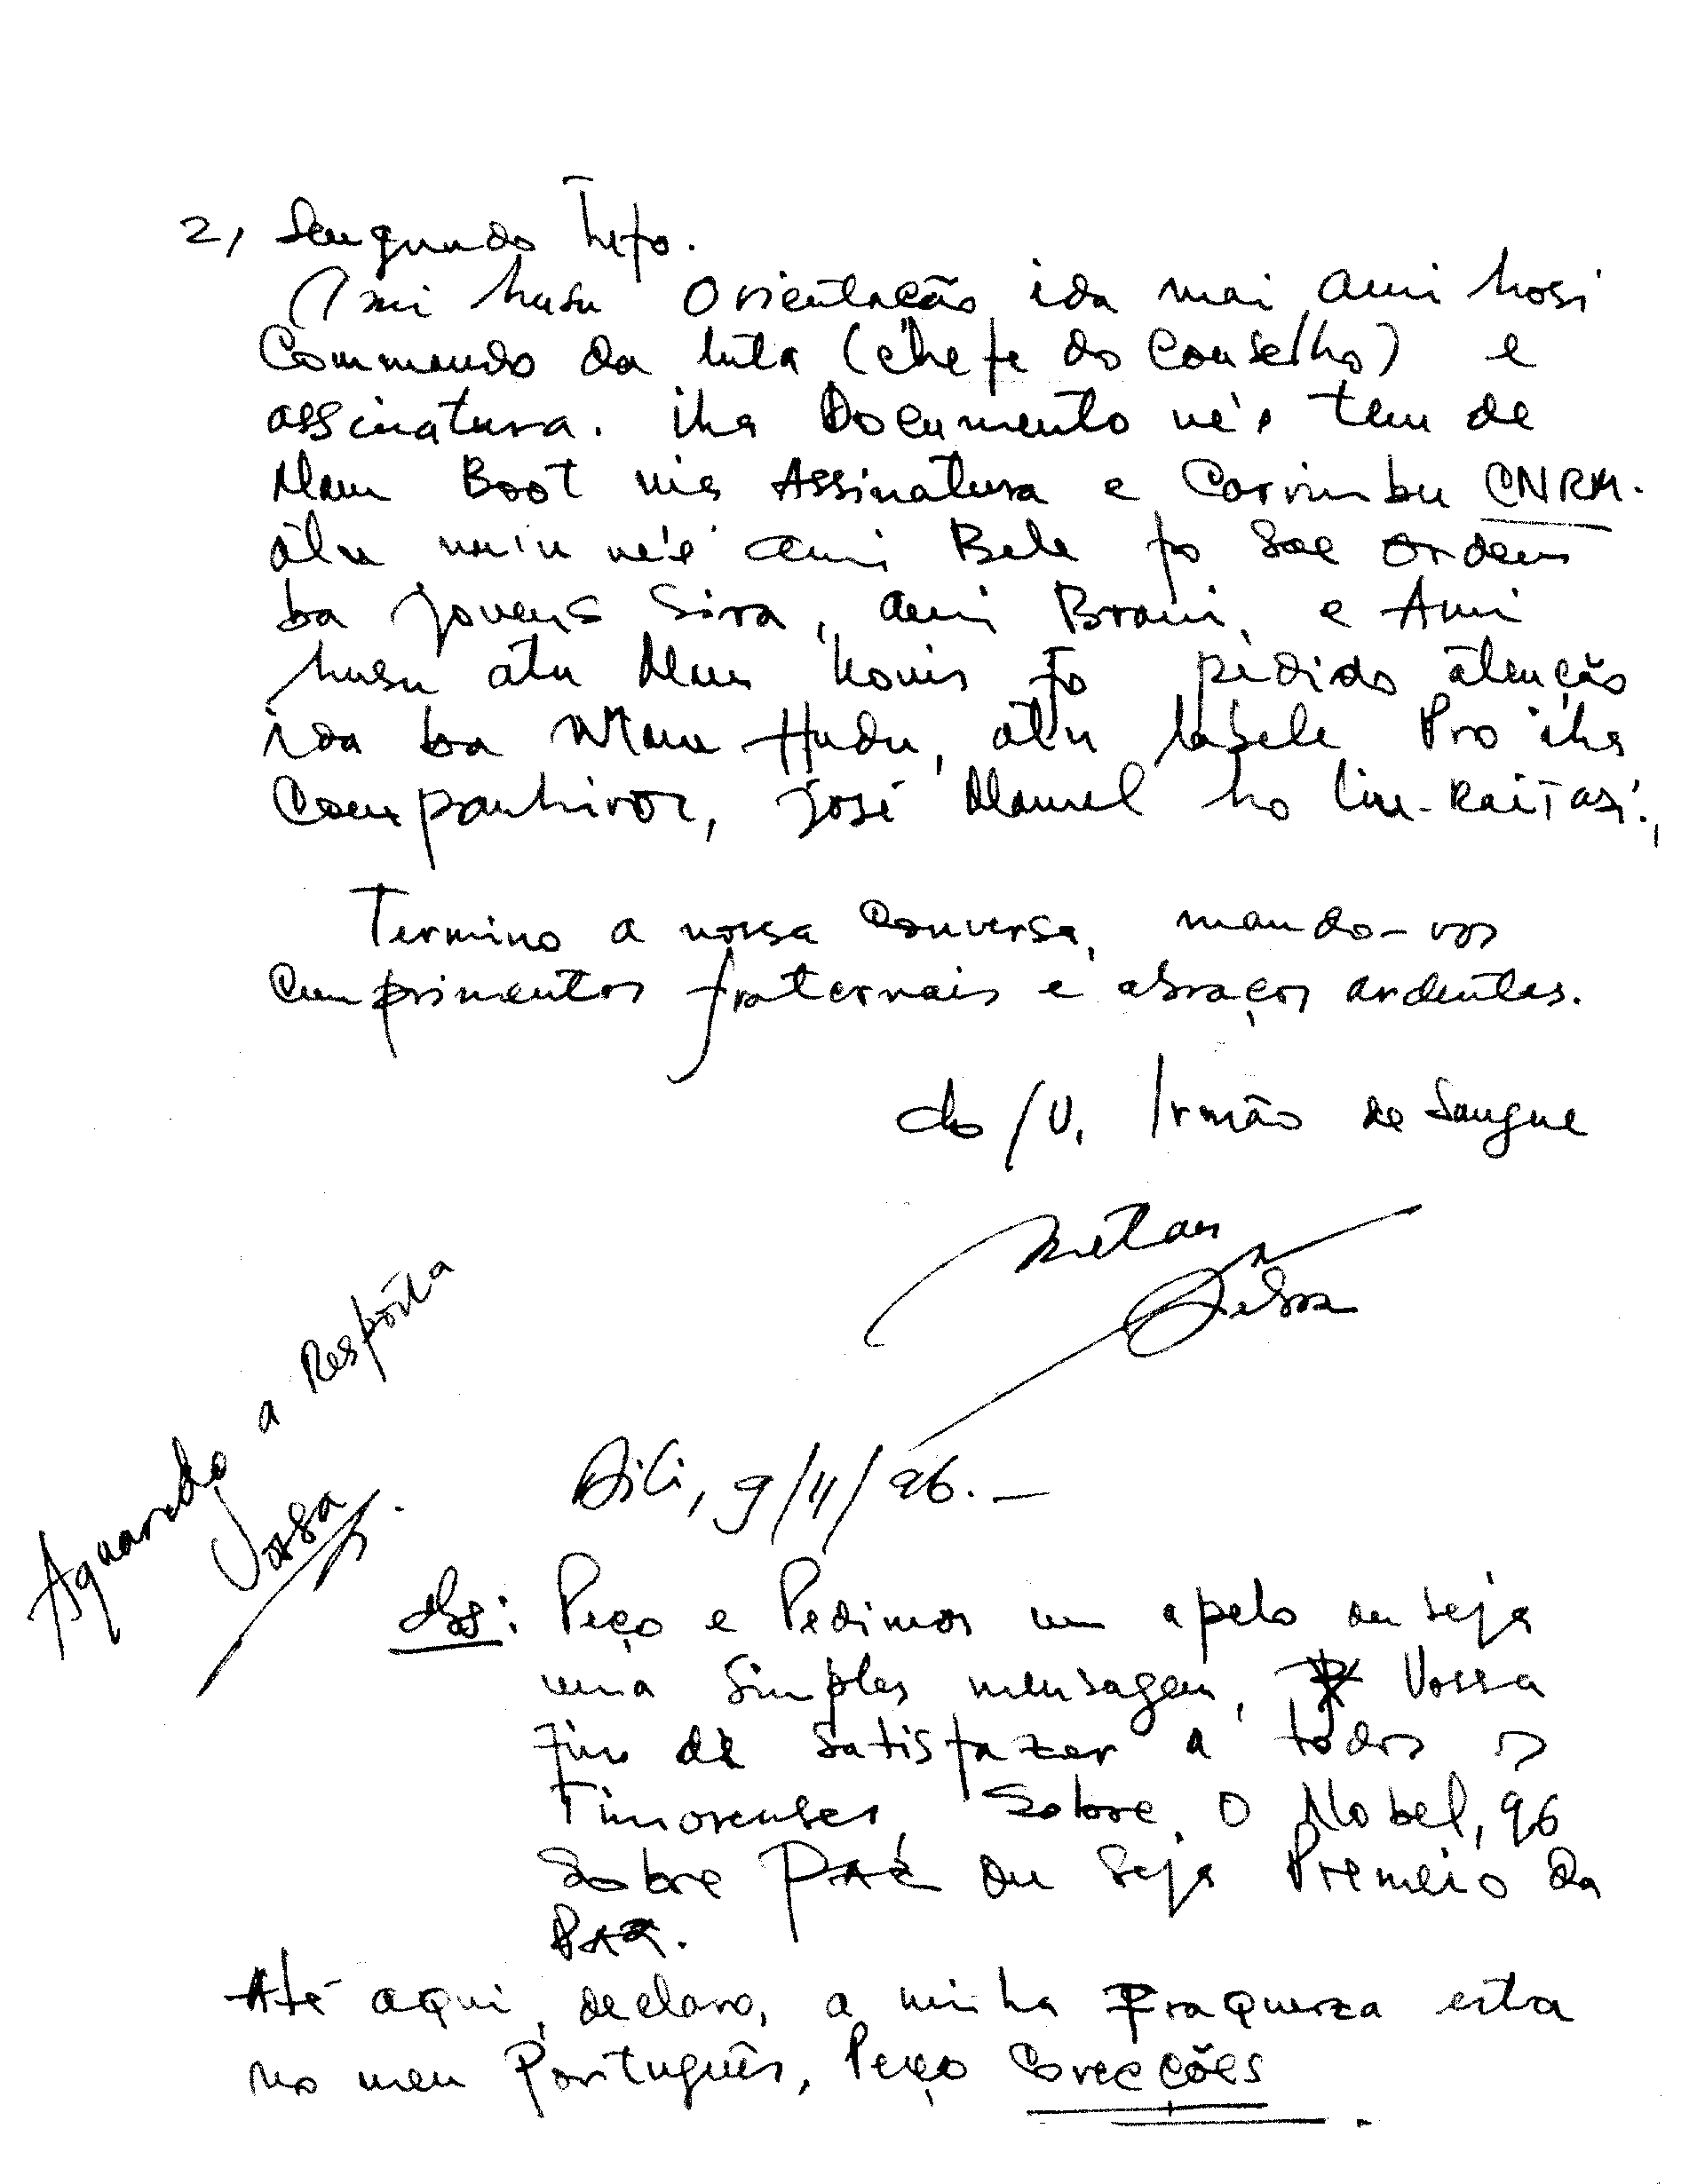 2, Seugundo
Ami husu Orientação ida mai ami hosi
Commando da luta (chefe do Conselho) e
assinatura. iha Documento né'e tem de
Maun Boot nia Assinatura e Carimbu CNRM.
atu nu'u né'e ami Bele fo sae ordem
ba jovens Sira, ami Brani, e Ami
husu atu Maun Konis fo pedido atenção
ida ba Mau Hudu, atu labele Pro iha
Companhiros, josé Manuel ho Lu-Kai Tasi.,
Termino a nossa Conversa, mando-vos
Cumprimentos fraternais e abraços ardentes.
do /V. Irmão de Sangue
Aguardo a Resposta
Vossa.
Dili, 9/11/96.—
Obs: Peço e Pedimos um apelo ou seja
uma Simples mensagem, Vossa
fim de satisfazer a todos os
Timorenses, Sobre, O Nobel, 96
Sobre PAZ ou seja Premeio da
PAZ.
Até aqui, declaro, a minha Fraqueza esta
no meu Português, Peço Corecções.